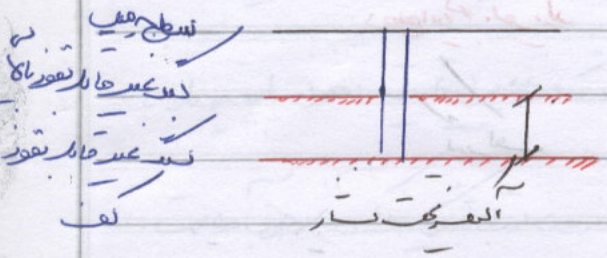 سطح زمین
سنگ غیر قابل نفوذ بالا
سنگ غیر قابل نفوذ
کف
آبخوان تحت فشار